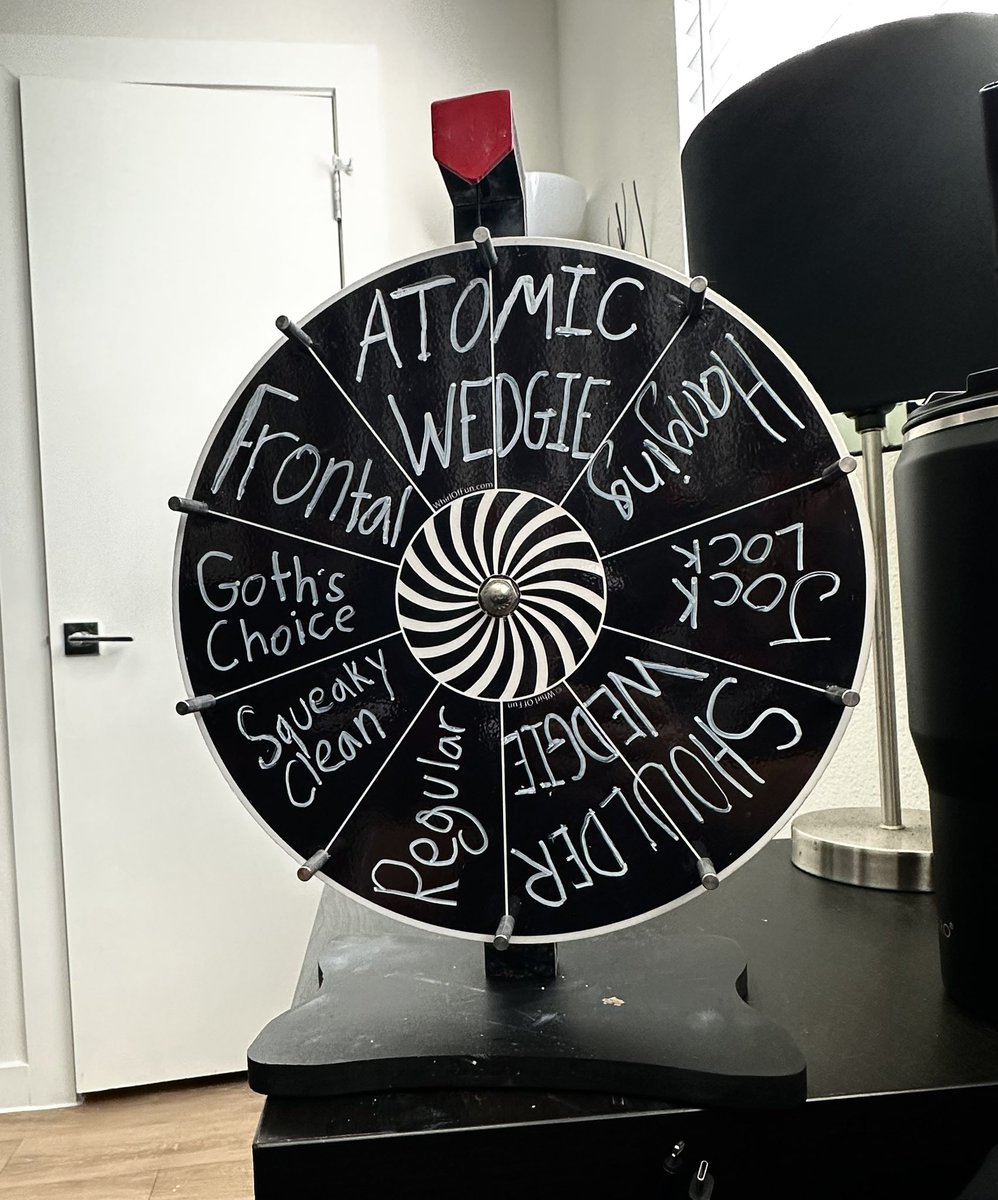 ATOMIC
WEDGIE
Hanging
JOCK
LOCK
SHOULDER
WEDGIE
Regular
Squeaky
Clean
Goth's
Choice
Frontal
WhirlOfFun.com
© Whirl Of Fun